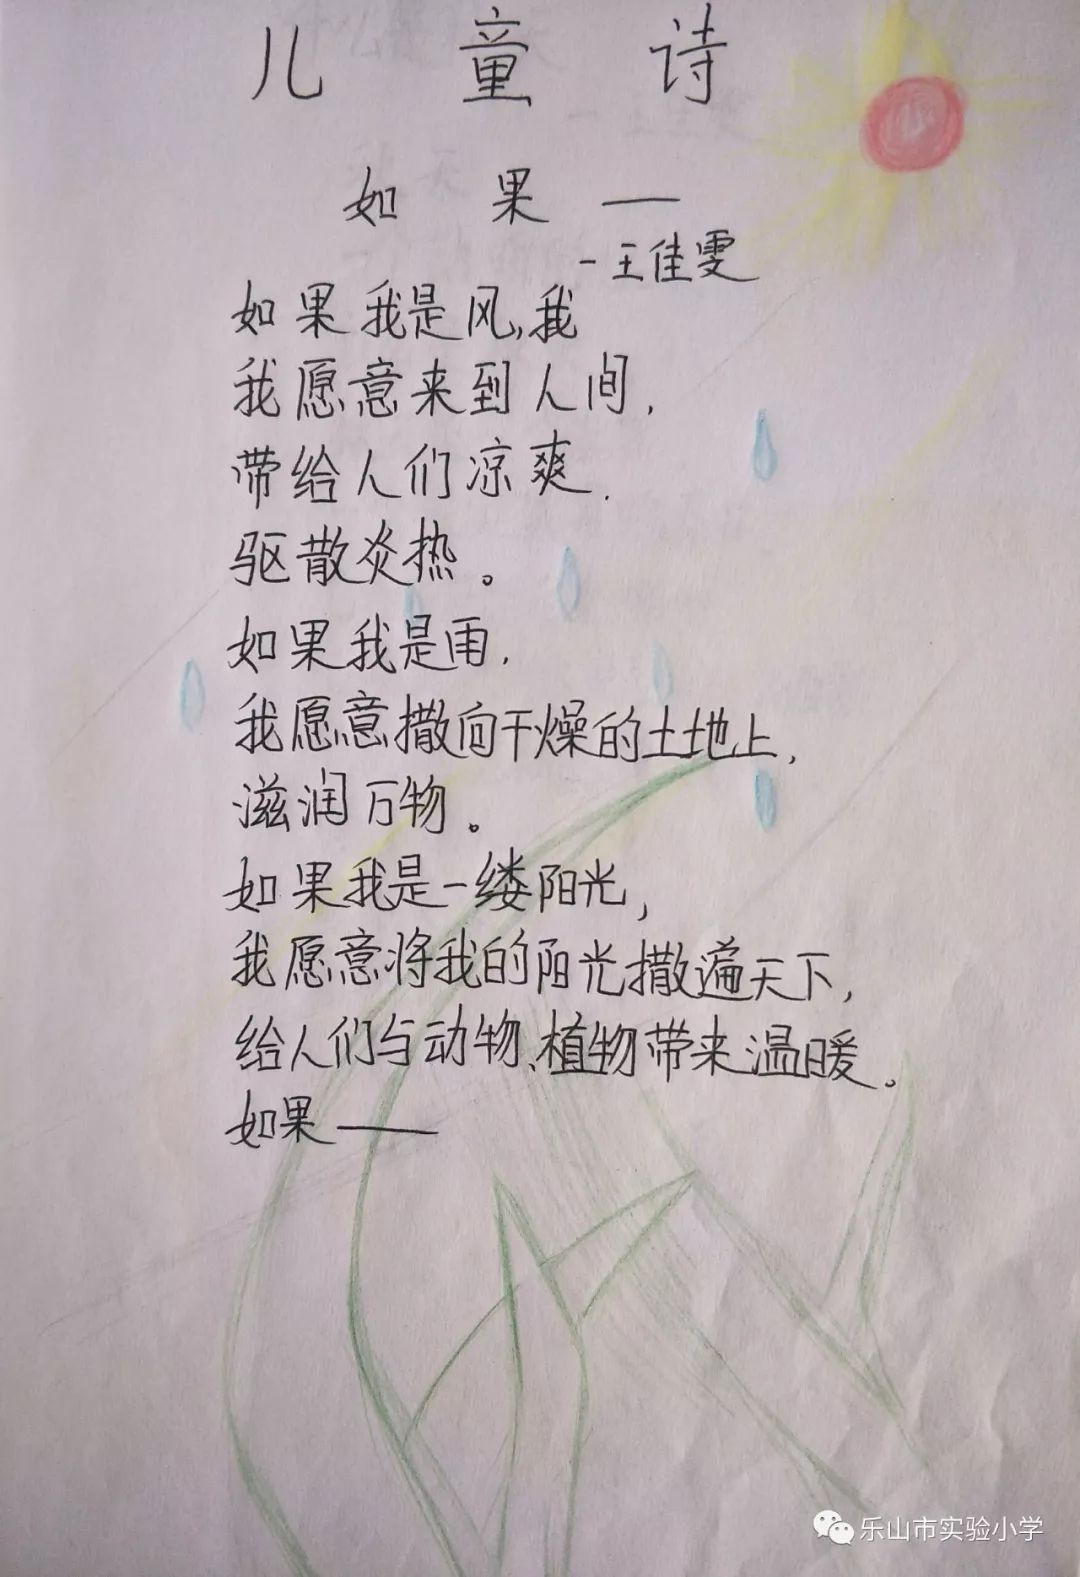 儿童诗
如果——
-王佳雯
如果我是风,我
我愿意来到人间,
带给人们凉爽.
驱散炎热。
如果我是雨,
我愿意撒向干燥的土地上,
滋润万物。
如果我是一缕阳光,
我愿意将我的阳光撒遍天下,
给人们与动物、植物带来温暖。
如果——
乐山市实验小学